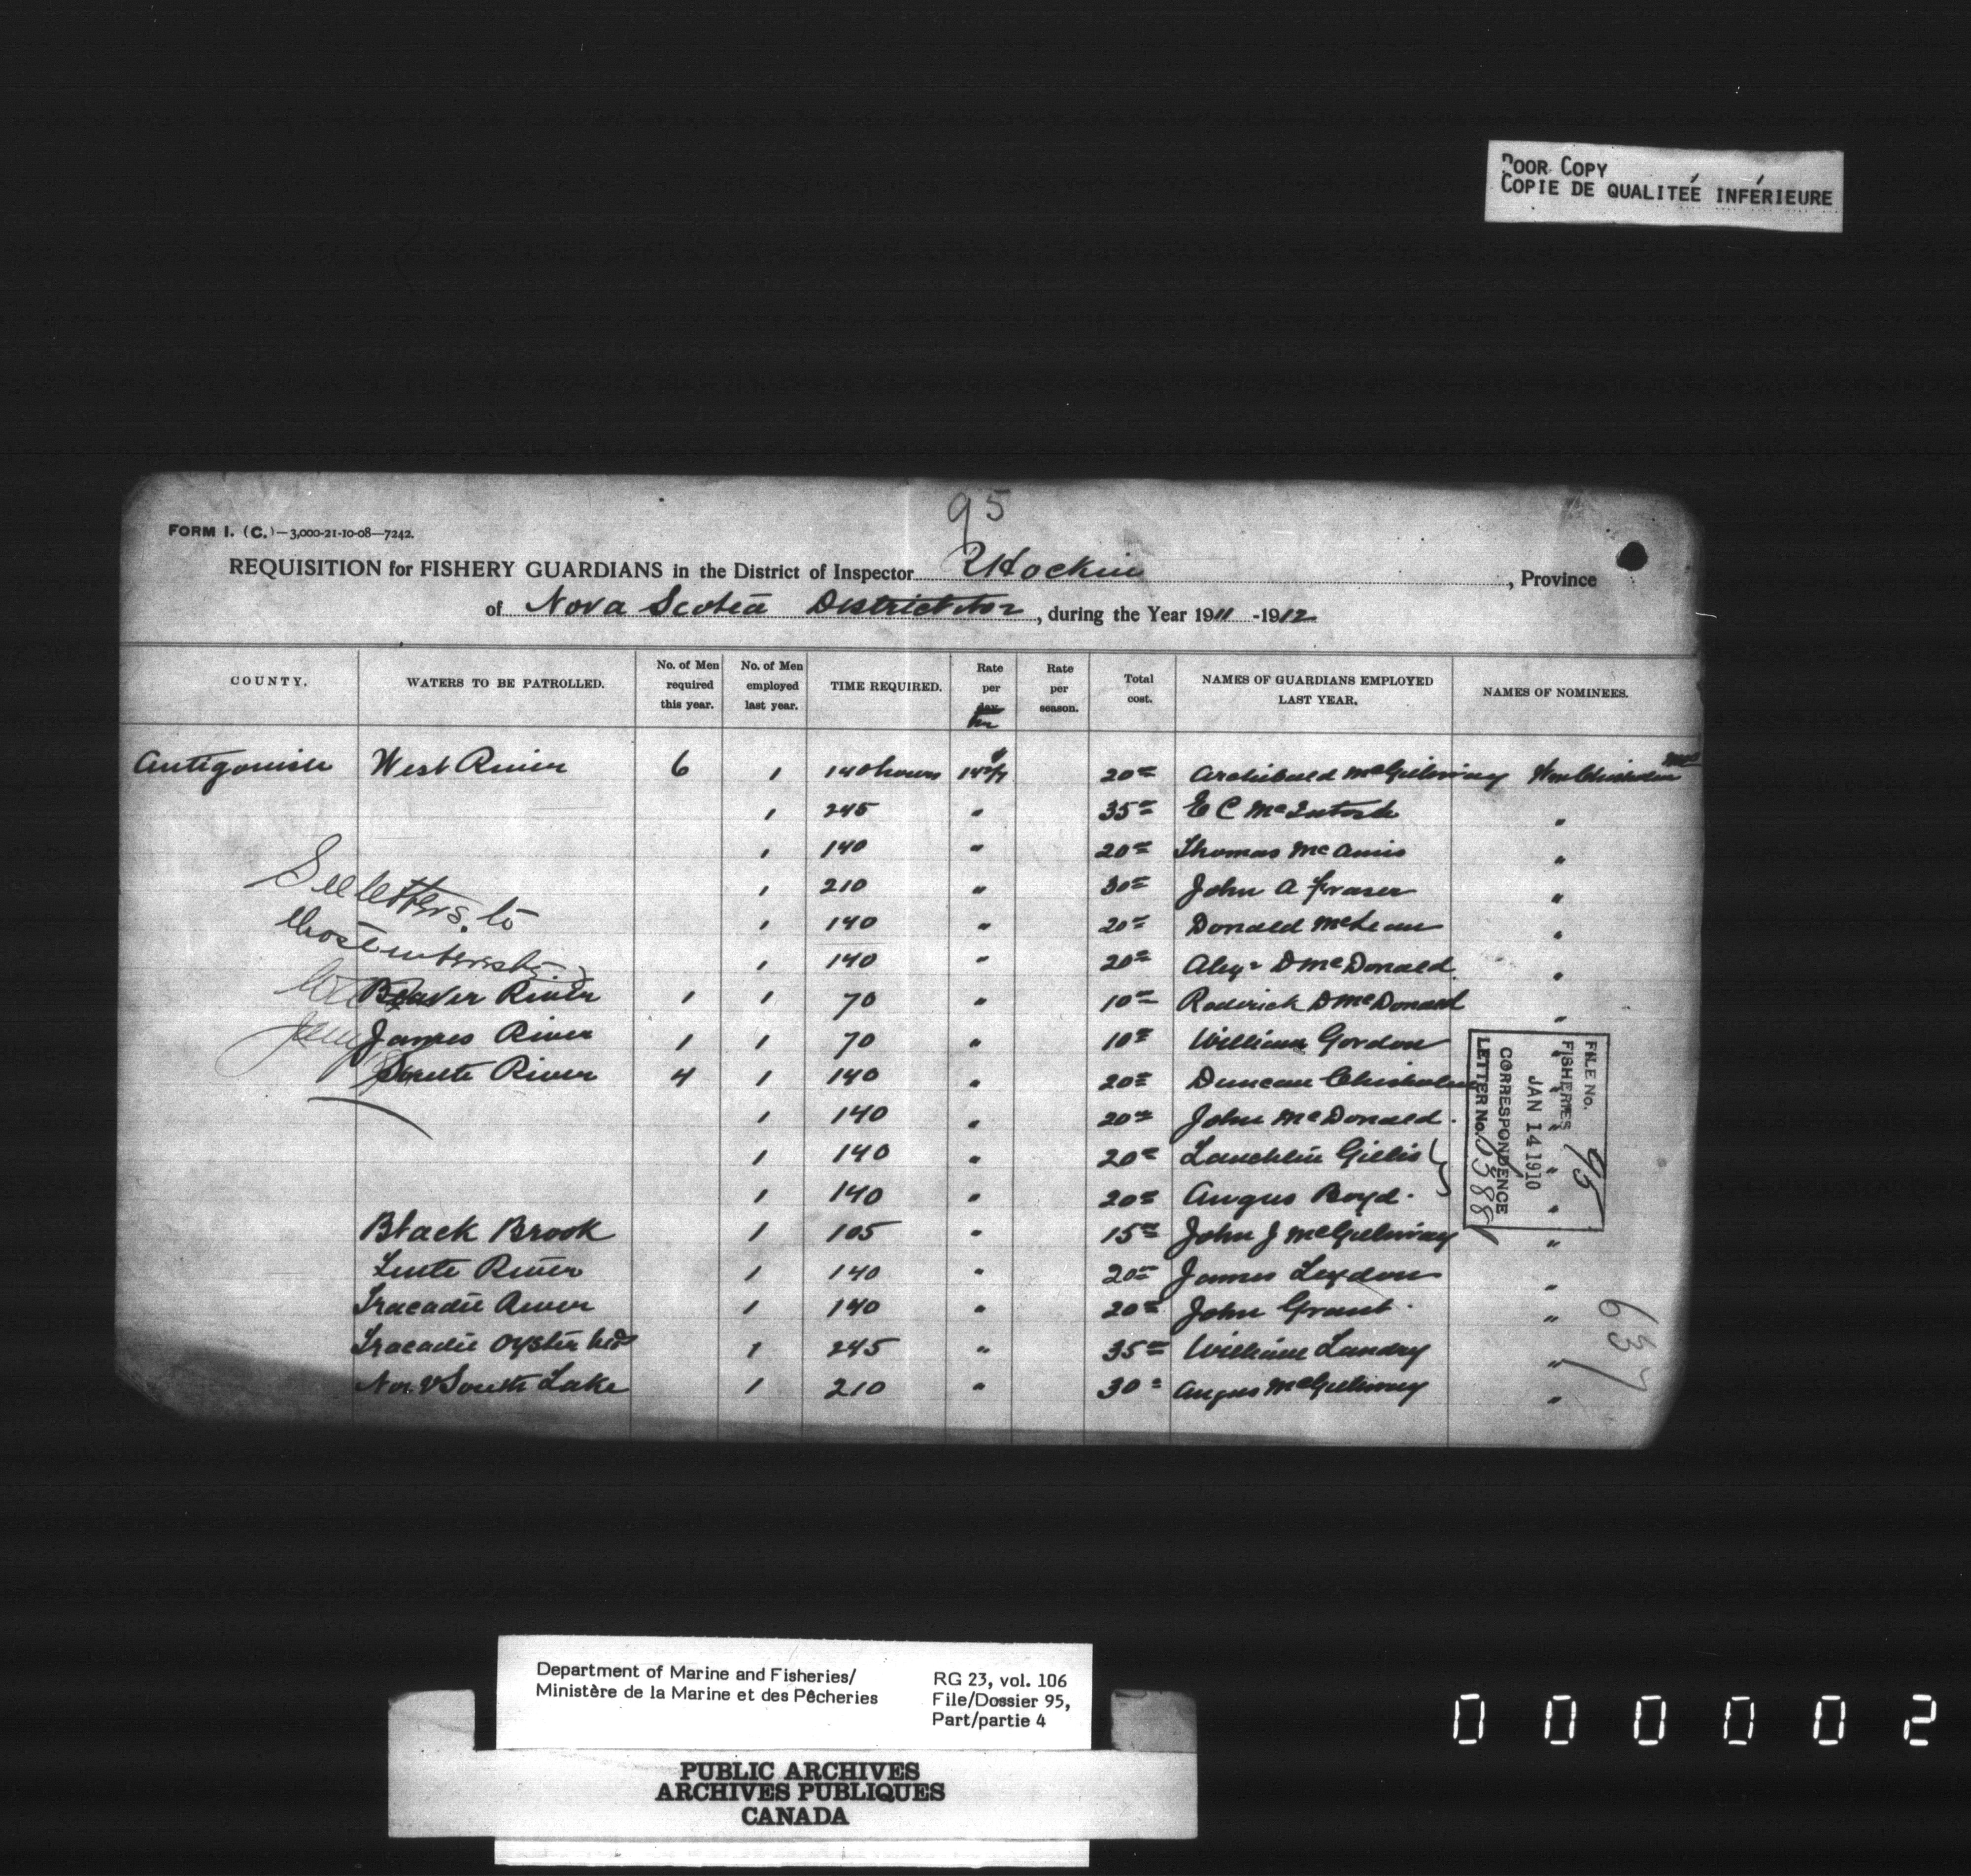 POOR COPY
COPIE DE QUALITEÉ INFÉRIEURE
95
FORM 1. (C.)—3,000-21-10-08—7242.
REQUISITION for FISHERY GUARDIANS in the District of Inspector R Hockin, Province
of Nova Scotia District No 2, during the Year 1911-1912
COUNTY. WATERS TO BE PATROLLED. No. of Men required this year. No. of Men employed last year. TIME REQUIRED. Rate per day hr Rate per season. Total cost. NAMES OF GUARDIANS EMPLOYED LAST YEAR. NAMES OF NOMINEES.
Antigonish West River 6 1 140 hours 20 Archibald McGillivray Wm Chisholm
1 245 " 35 E C McIntosh "
1 140 " 20 Thomas "
1 210 " 30 John A Fraser "
1 140 " 20 Donald McLean "
1 140 " 20 Alex D McDonald "
Beaver River 1 1 70 " 10 Roderick D McDonald "
James River 1 1 70 " 10 William Gordon "
South River 4 1 140 " 20 Duncan Chisholm "
1 140 " 20 John McDonald "
1 140 " 20 Lauchlin Gillis "
1 140 " 20 Angus Boyd "
Black Brook 1 105 " 15 John J McGillivray "
River 1 140 " 20 James "
Tracadie River 1 140 " 20 John Grant "
Tracadie Oyster beds 1 245 " 35 William Landry "
South Lake 1 210 " 30 Angus McGillivray "
See letters to
those
FILE No. 95
FISHERIES
JAN 14 1910
CORRESPONDENCE
LETTER No.
637
Department of Marine and Fisheries/
Ministère de la Marine et des Pêcheries
RG 23, vol. 106
File/Dossier 95,
Part/partie 4
PUBLIC ARCHIVES
ARCHIVES PUBLIQUES
CANADA
000002